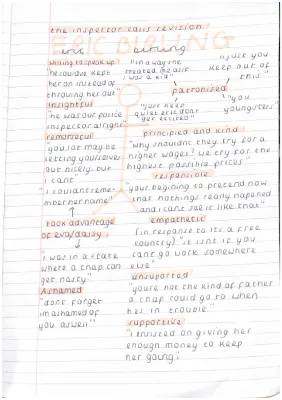 the inspector calls revision
ERIC BIRLING
eric birling
willing to speak up
"he could've kept
her on instead of
throwing her out"
insightful
"he was our police
inspector alright"
remorseful
"you lot may be
letting yourselves
out nicely, but
i can't"
"i couldn't reme-
mber her name"
took advantage
of eva/daisy
i was in a state
where a chap can
get nasty"
Ashamed
"don't forget
im ashamed of
you aswell"
"in a way she
treated me as if
i was a kid"
"just you
keep out of
this"
patronised
"just keep
quiet eric don't
get excited"
"you
youngsters"
principled and kind
"why shouldn't they try for
higher wages? we try for the
highest possible prices"
responsible
"your beginning to pretend now
that nothings really happened
and i can't see it like that"
empathetic
(in response to its a free
country) "it isn't if you
can't go work somewhere
else"
unsupported
"you're not the kind of father
a chap could go to when
he's in trouble"
supportive
"i insisted on giving her
enough money to keep
her going"